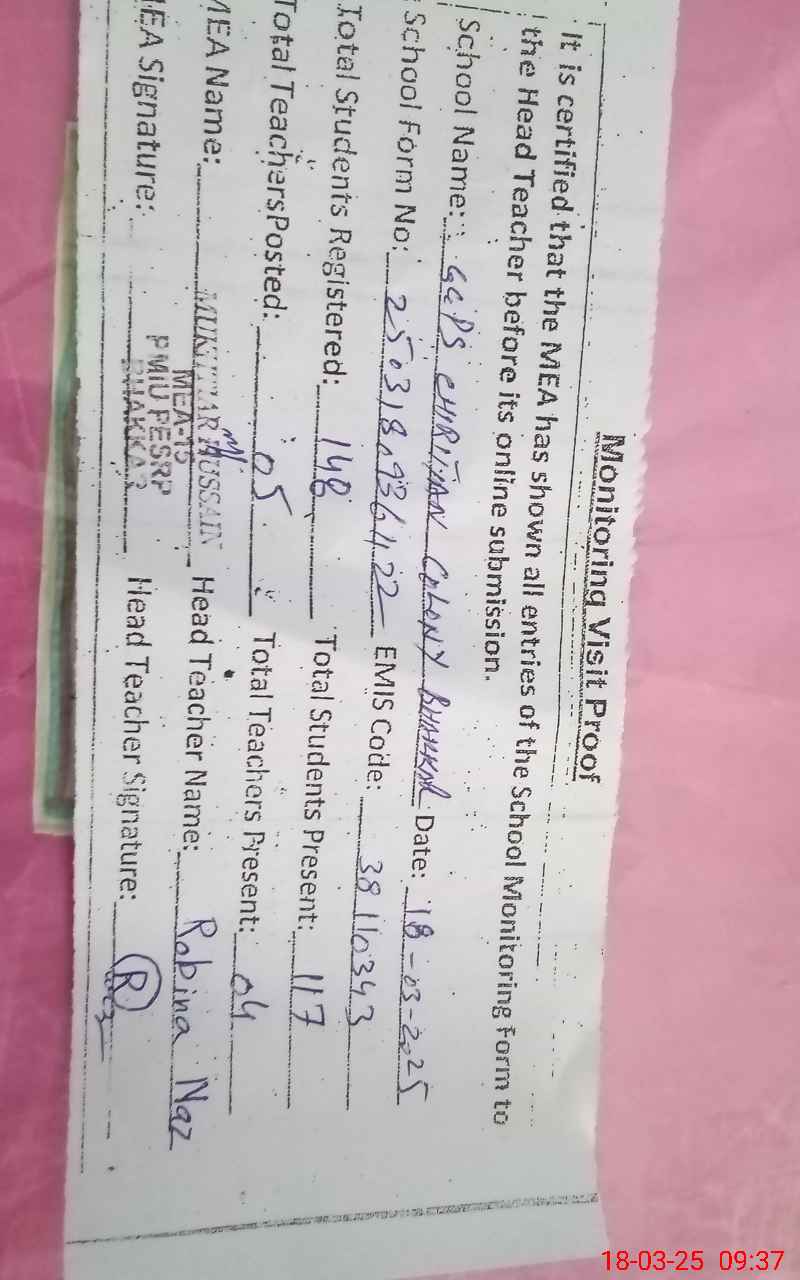 Monitoring Visit Proof
It is certified that the MEA has shown all entries of the School Monitoring Form to
the Head Teacher before its online submission.
School Name: GGPS CHIRIJAN COLONY BHAKKAR Date: 18-03-2025
School Form No: 25031809364122 EMIS Code: 38110343
Total Students Registered: 148 Total Students Present: 117
Total Teachers Posted: 05 Total Teachers Present: 04
MEA Name: MUKHTIAR HUSSAIN Head Teacher Name: Robina Naz
MEA-15
PMIU PESRP
BHAKKAR
MEA Signature: Head Teacher Signature: R
18-03-25 09:37